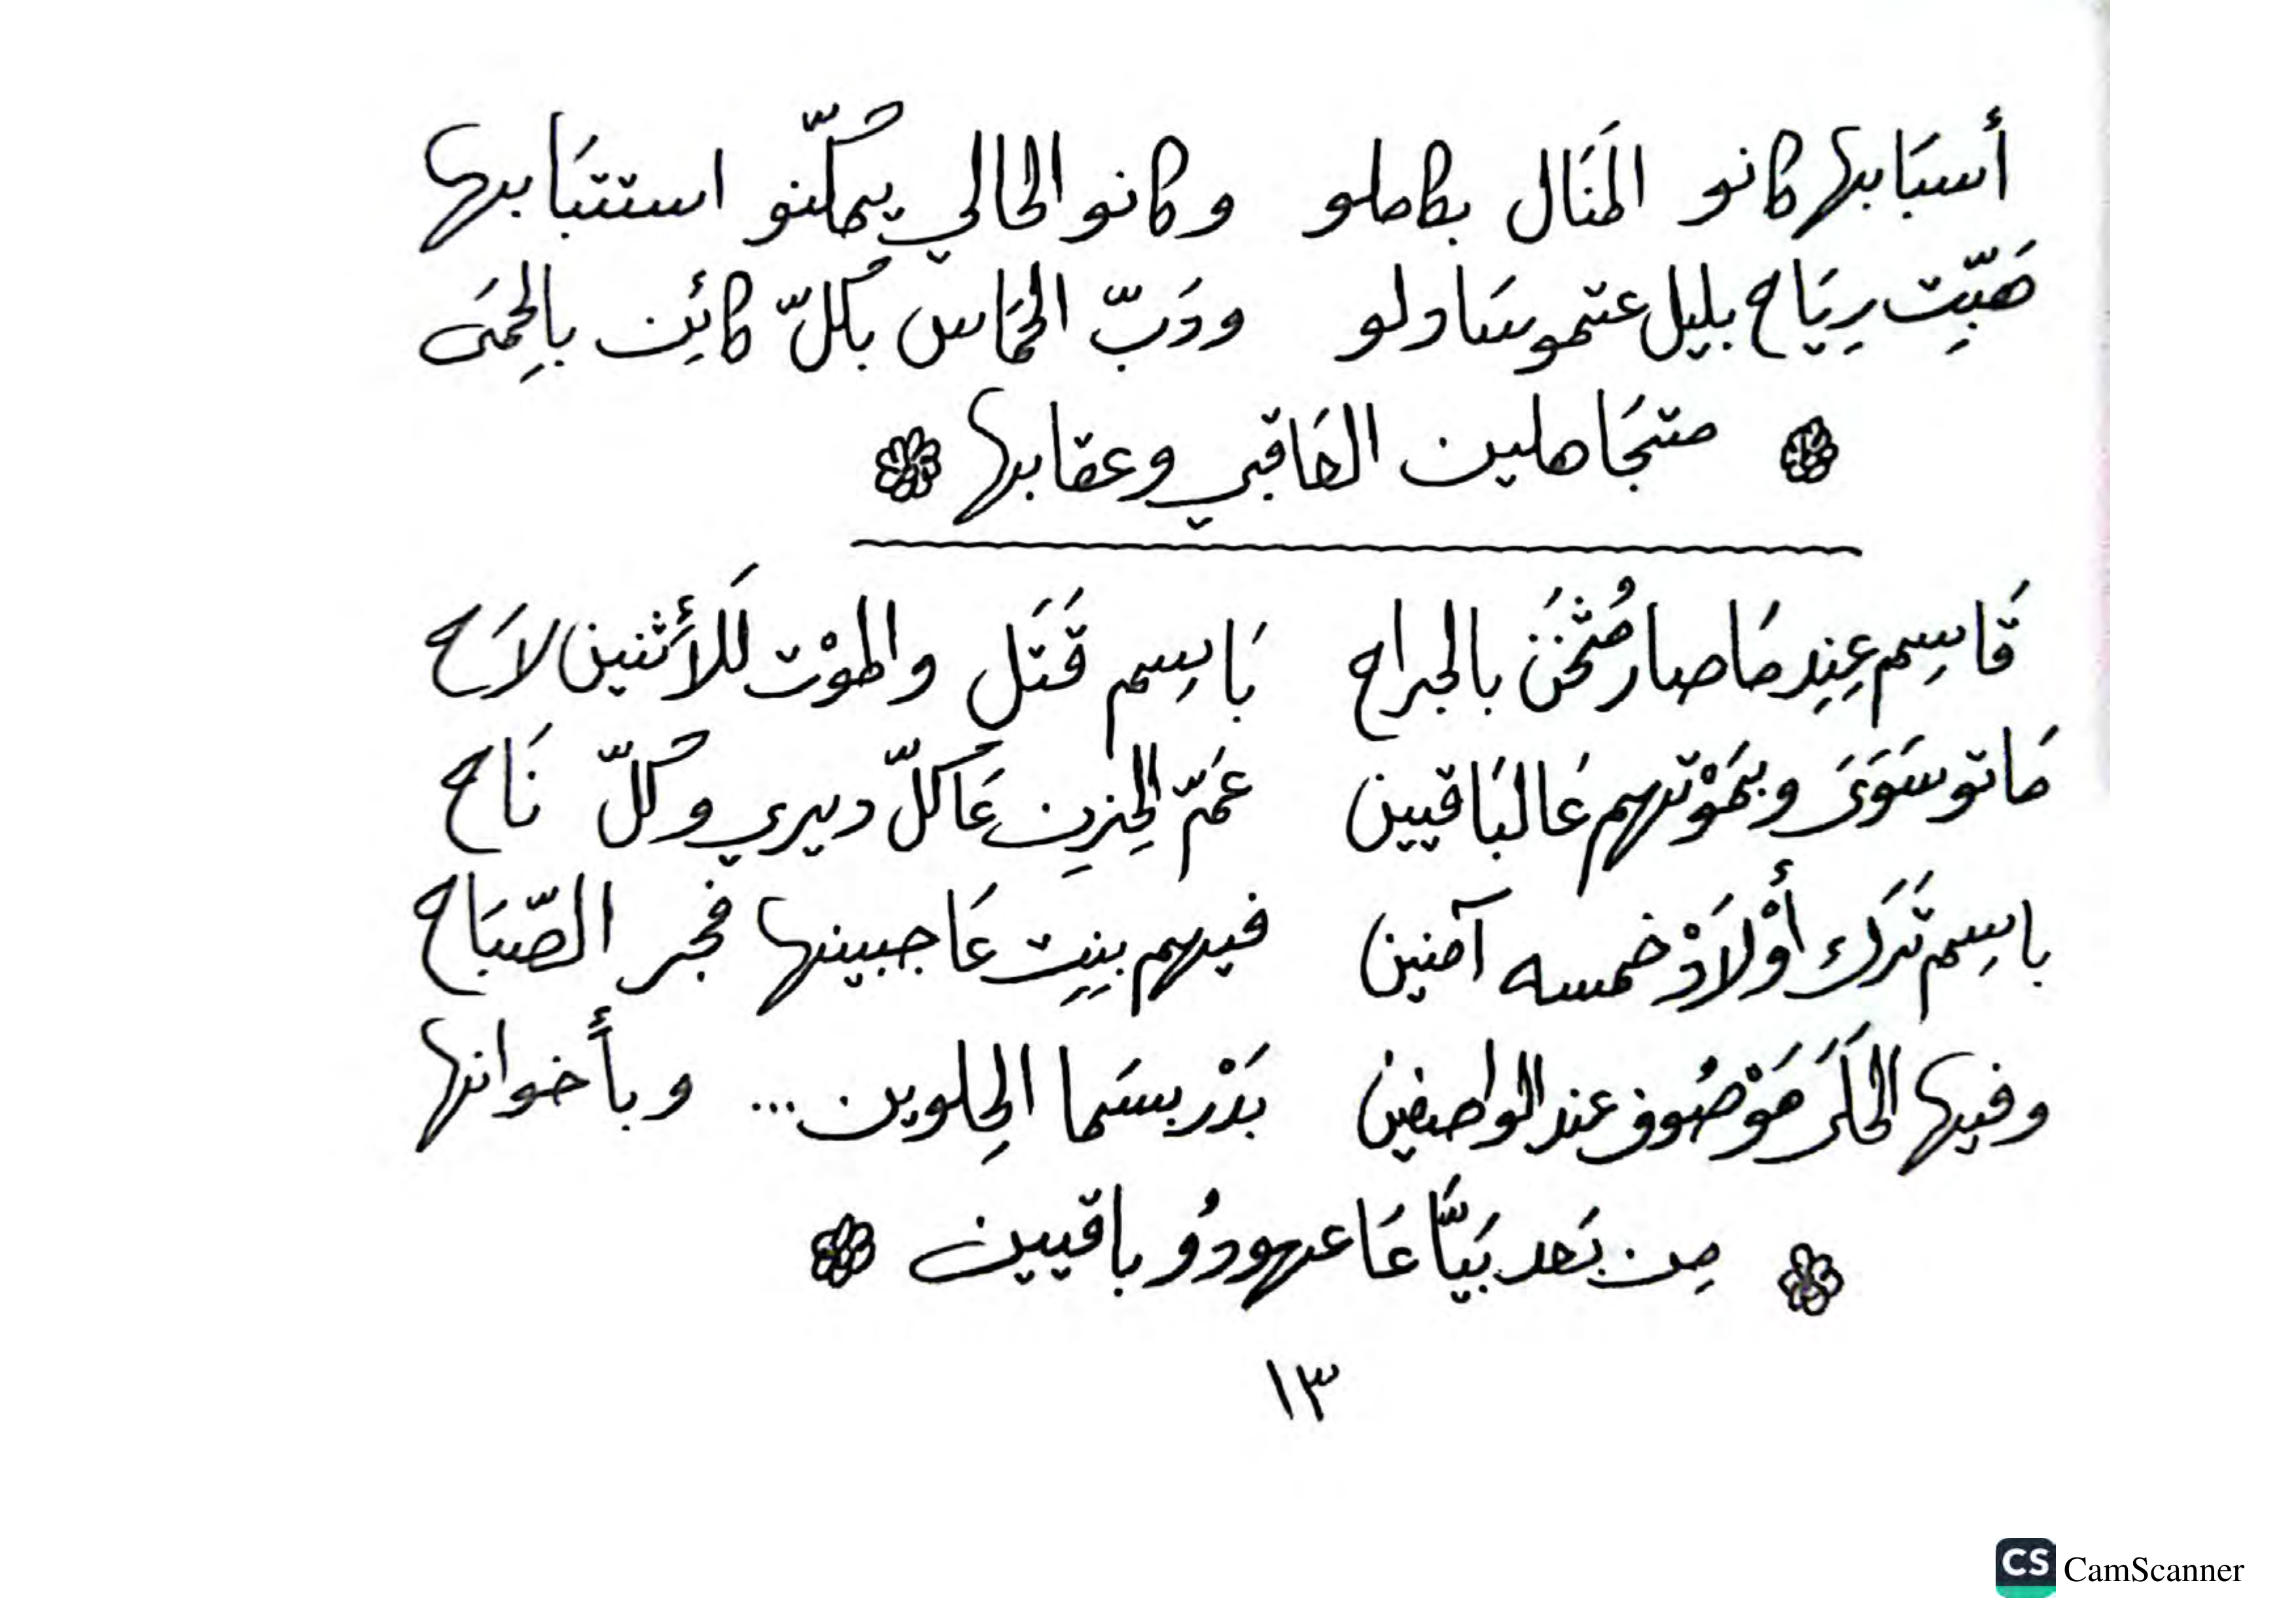 أسبَابها كانو المنَال بكاملو وكانو الحالي يمكّنو استتبَابها
هَبّت رِيَاح بليل عتمو سَادلو ودَبّ الحمَاس بكُلّ كائِن بالحِمَى
متجَاهلين العَاقبي وعقابها
قَاسِم عِندِ مَا صار مُثْخَن بالجراح بَاسِم قَتَل والموْت لَلأثنين لاَح
مَاتو سَوَىَ وبمَوْتهم عَالبَاقيين عَمّ الحِزِن عَاكُلّ ديري وكُلّ نَاح
باسِم تَرَك أوْلاَدْ خمسه آمنين فيهم بِنِت عَاجبينها فجر الصّبَاح
وفيها الحَكَر مَوْصُوف عند الواصفين بَدْر بسَما الحِلوين... وبأخوانها
مِن بَعد بَيَّا عَاعهودُو باقيين
١٣
CS CamScanner